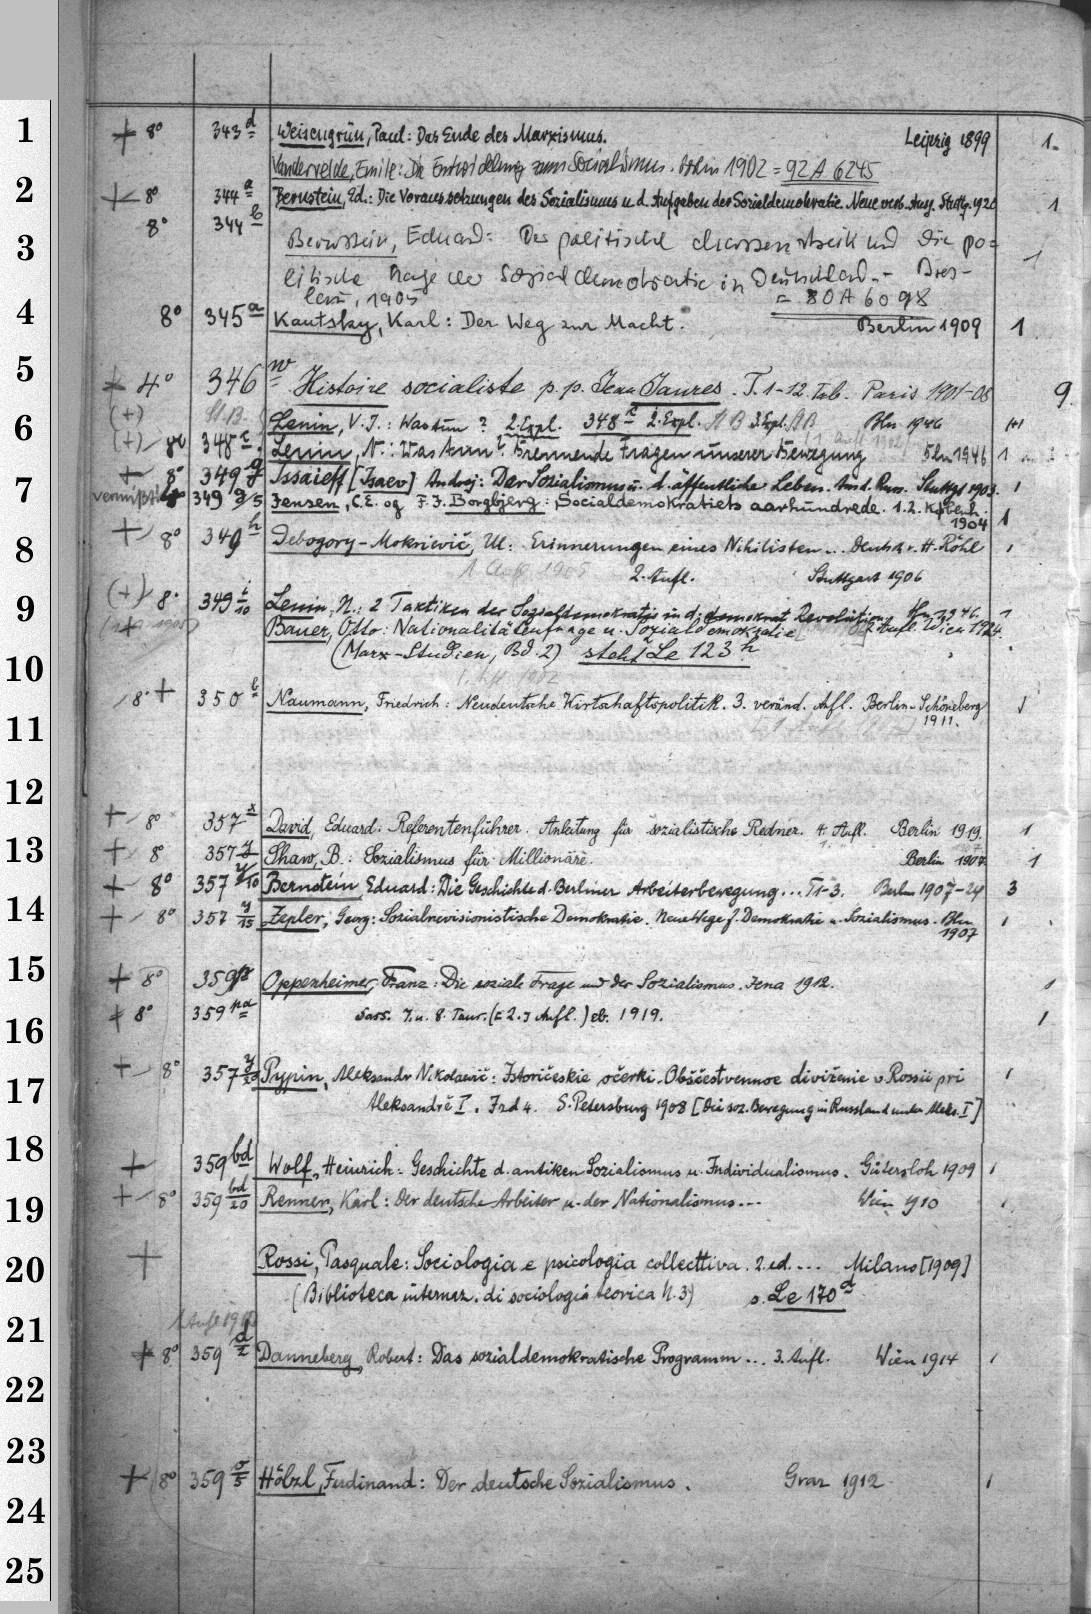 1
+ 8° 343 d Weisengrün, Paul: Das Ende des Marxismus. Leipzig 1899 1.
Vandervelde, Emile: Die Entwicklung zum Sozialismus. Bln 1902 = 92 A 6245
2
+ 8° 344 a Bernstein, Ed.: Die Voraussetzungen des Sozialismus u. d. Aufgaben der Sozialdemokratie. Neue verb. Ausg. Stuttg. 1920 1
3
8° 344 b Bernstein, Eduard: Der politische Massenstreik und die po=
litische Lage der Sozialdemokratie in Deutschland. - Bres- 1
lau, 1905 = 80 A 6098
4
8° 345 a Kautsky, Karl: Der Weg zur Macht. Berlin 1909 1
5
+ 4° 346 w Histoire socialiste p. p. Jean Jaures. T. 1-12. Tab. Paris 1901-08 9.
6
(+) Lenin, V. J.: Was tun? 2. Expl. 348 r 2. Expl. 3. Expl. Bln. 1946
(+) 348 r Lenin, N.: Was tun? Brennende Fragen unserer Bewegung Bln 1946 1
7
+ 8° 349 g Issaieff [Isaev] Andrej: Der Sozialismus u. d. öffentliche Leben. Aus d. Russ. Stuttgt 1903. 1
vermißt 349 g/5 Jensen, C. E. og F. J. Borgbjerg: Socialdemokratiets aarhundrede. 1. 2. Kjøbenh. 1904 1
8
+ 8° 349 h Debogory-Mokrievič, Vl.: Erinnerungen eines Nihilisten... Deutsch v. H. Röhl 1
1. Aufl. 1905 2. Aufl. Stuttgart 1906
9
(+) 8° 349 i/10 Lenin, N.: 2 Taktiken der Sozialdemokratie in d. demokrat. Revolution. Bln 1946. 1
+ Bauer, Otto: Nationalitätenfrage u. Sozialdemokratie 2. Aufl. Wien 1924.
10
(Marx-Studien, Bd. 2) steht Le 123 h
8° + 350 b Naumann, Friedrich: Neudeutsche Wirtschaftspolitik. 3. veränd. Afl. Berlin-Schöneberg
11
1911.
12
+ 8° 357 x David, Eduard: Referentenführer. Anleitung für sozialistische Redner. 4. Aufl. Berlin 1919. 1
13
+ 8° 357 y Shaw, B.: Sozialismus für Millionäre. Berlin 1907 1
+ 8° 357 y/10 Bernstein, Eduard: Die Geschichte d. Berliner Arbeiterbewegung... T 1-3. Berlin 1907-24 3
14
+ 8° 357 y/15 Zepler, Georg: Sozialrevisionistische Demokratie. Neue Wege f. Demokratie u. Sozialismus. Bln 1907 1
15
+ 8° 359 p Oppenheimer, Franz: Die soziale Frage und der Sozialismus. Jena 1912. 1
16
+ 8° 359 pa Dass. 7. u. 8. Taus. (= 2. Aufl.) eb. 1919. 1
17
+ 8° 357 y/20 Pypin, Aleksandr Nikolaevič: Istoričeskie očerki. Obščestvennoe diviženie v Rossii pri 1
Aleksandrě I. Izd 4. S. Petersburg 1908 [Die soz. Bewegung in Russland unter Aleks. I]
18
+ 359 bd Wolf, Heinrich: Geschichte d. antiken Sozialismus u. Individualismus. Gütersloh 1909 1
19
+ 8° 359 bd/20 Renner, Karl: Der deutsche Arbeiter u. der Nationalismus... Wien 1910
20
+ Rossi, Pasquale: Sociologia e psicologia collettiva. 2. ed.... Milano [1909]
(Biblioteca internaz. di sociologia teorica N. 3) s. Le 170 a
21
+ 8° 359 d/2 Danneberg, Robert: Das sozialdemokratische Programm... 3. Aufl. Wien 1914 1
22
23
+ 8° 359 o/5 Hölzl, Ferdinand: Der deutsche Sozialismus. Graz 1912 1
24
25